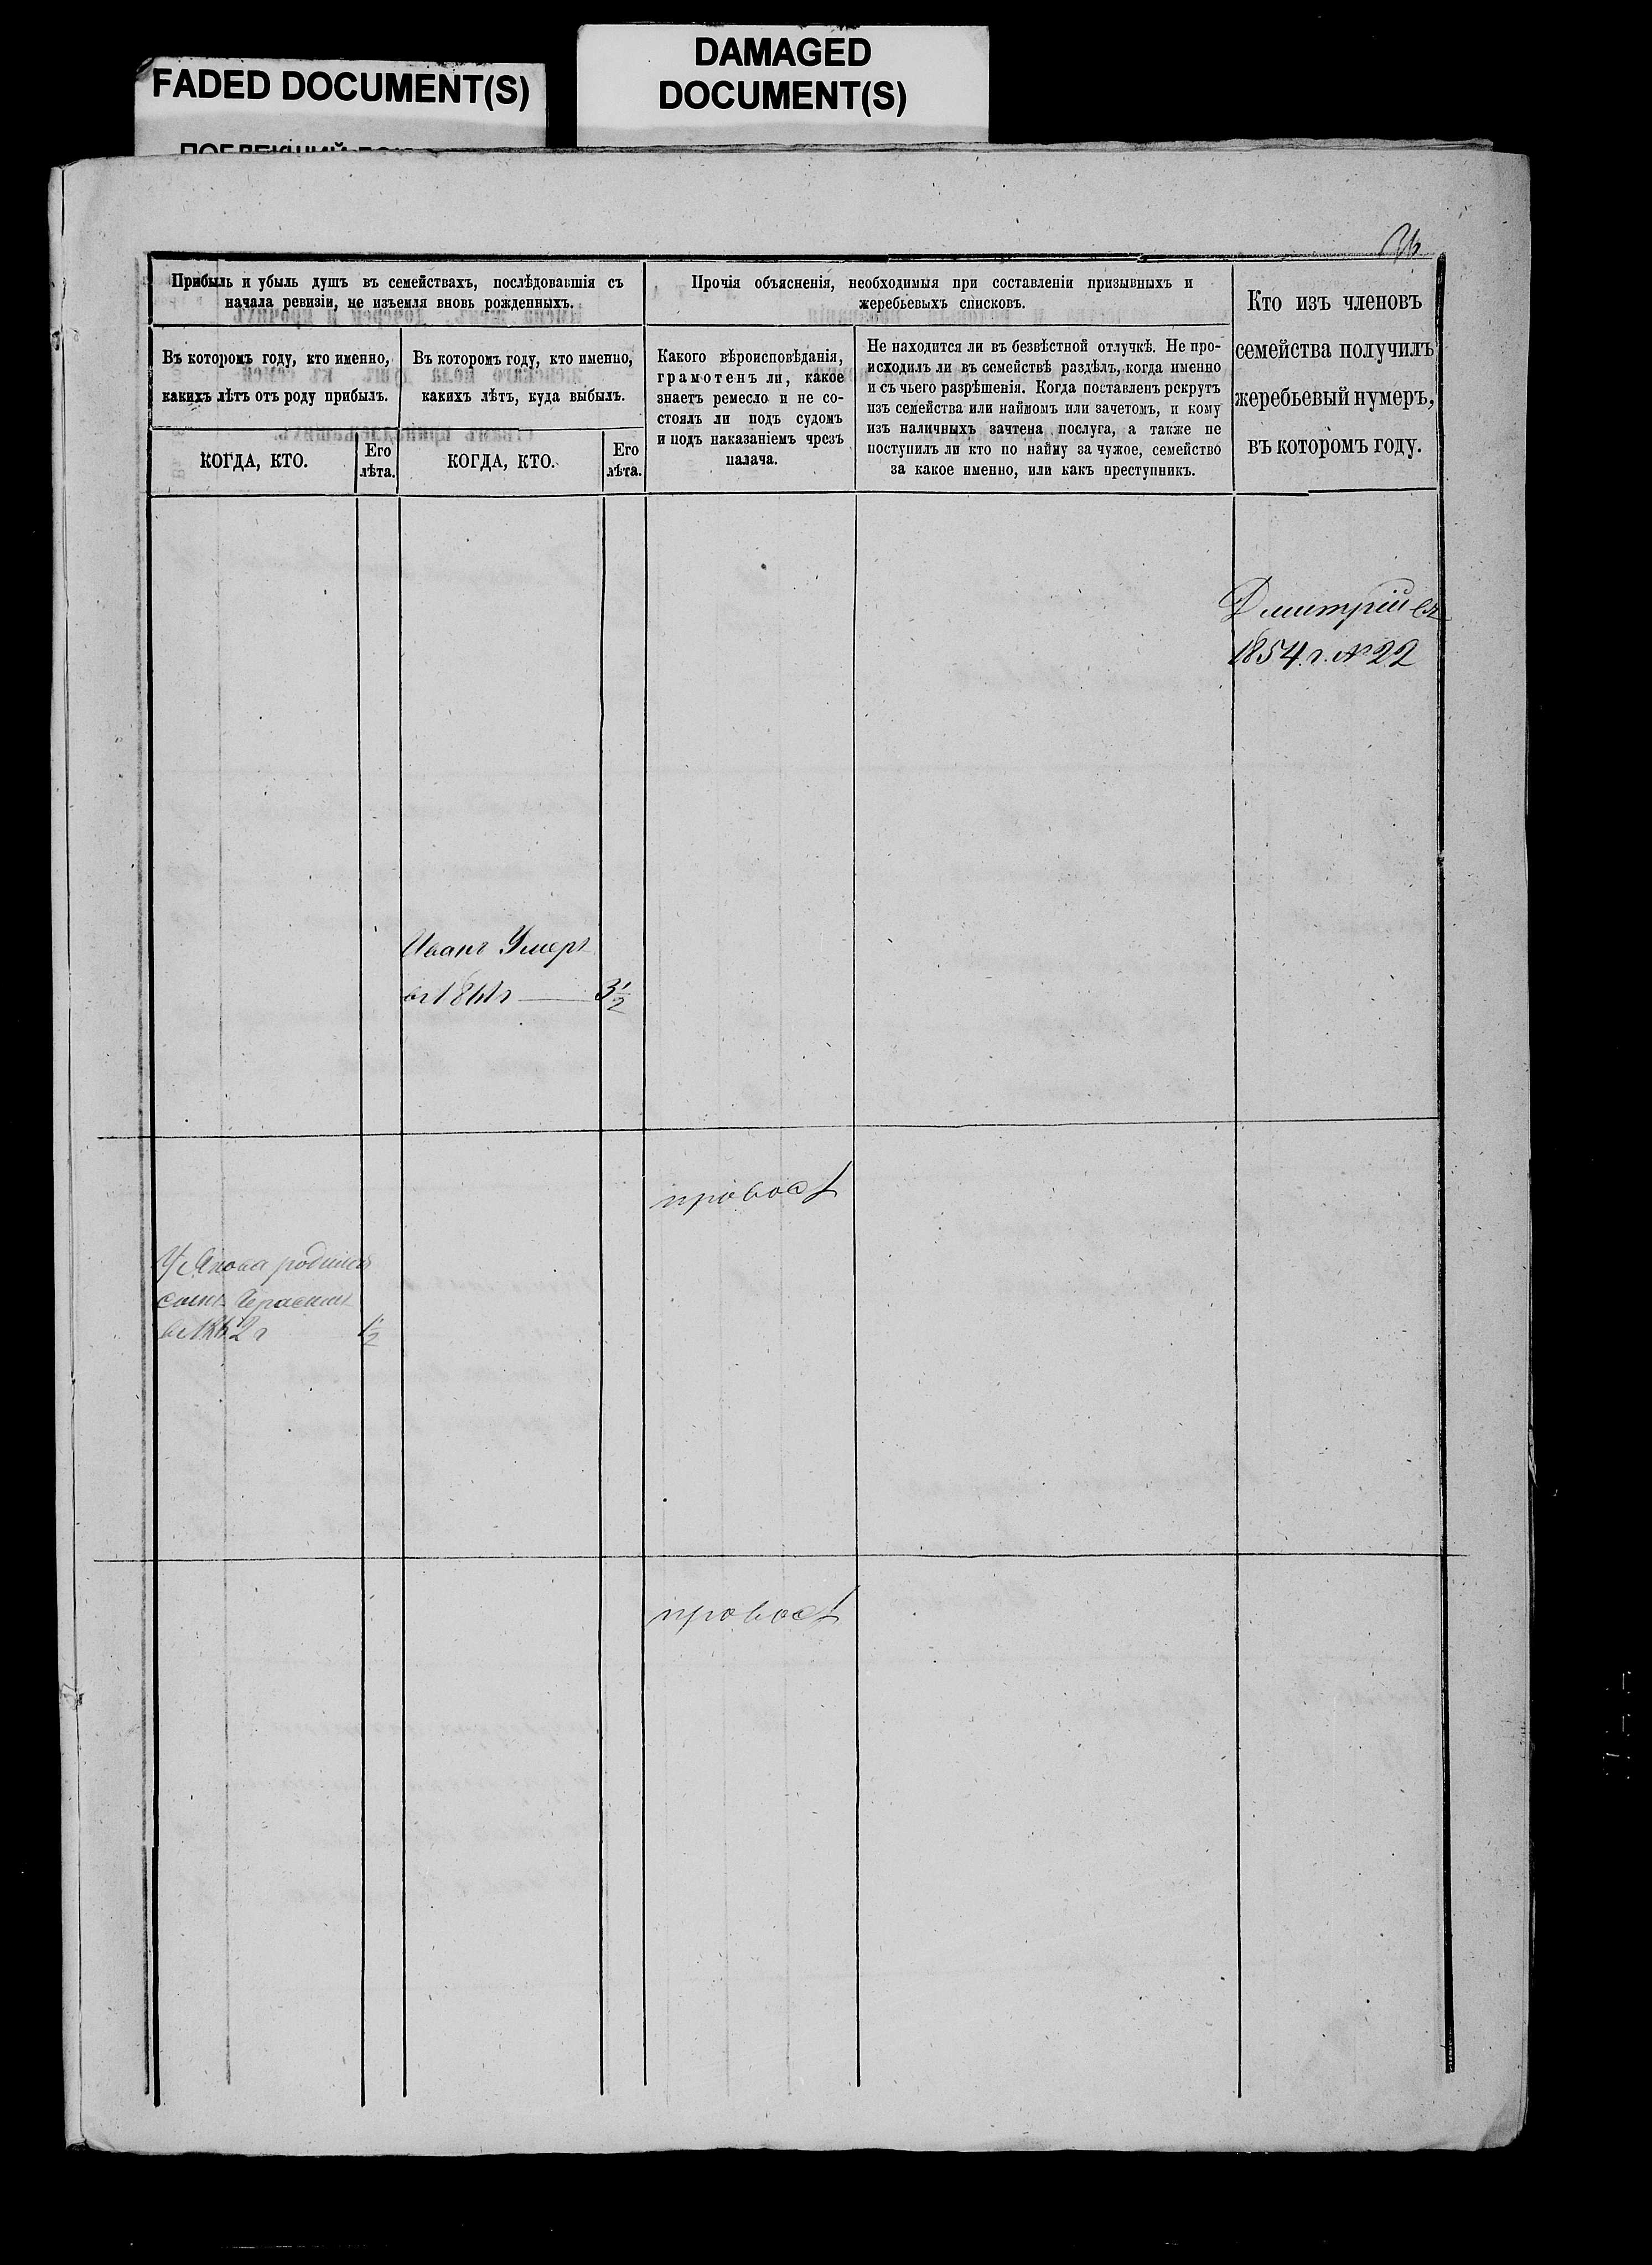 FADED DOCUMENT(S)
DAMAGED
DOCUMENT(S)
Прибыль и убыль душъ въ семействахъ, послѣдовавшія съ
начала ревизіи, не изъемля вновь рожденныхъ.
Прочія объясненія, необходимыя при составленіи призывныхъ и
жеребьевыхъ списковъ.
Кто изъ членовъ
семейства получилъ
жеребьевый нумеръ,
въ которомъ году.
Въ которомъ году, кто именно,
какихъ лѣтъ отъ роду прибылъ.
Въ которомъ году, кто именно,
какихъ лѣтъ, куда выбылъ.
Какого вѣроисповѣданія,
грамотенъ ли, какое
знаетъ ремесло и не со-
стоялъ ли подъ судомъ
и подъ наказаніемъ чрезъ
палача.
Не находится ли въ безвѣстной отлучкѣ. Не про-
исходилъ ли въ семействѣ раздѣлъ, когда именно
и съ чьего разрѣшенія. Когда поставленъ рекрутъ
изъ семейства или наймомъ или зачетомъ, и кому
изъ наличныхъ зачтена послуга, а также не
поступилъ ли кто по найму за чужое, семейство
за какое именно, или какъ преступникъ.
КОГДА, КТО.
Его
лѣта.
КОГДА, КТО.
Его
лѣта.
Дмитрій въ
1854 г. № 22
Иванъ Умеръ
въ 1861 г 3 1/2
правосл
У Якова родился
сынъ Герасимъ
въ 1862 г 1/2
правосл